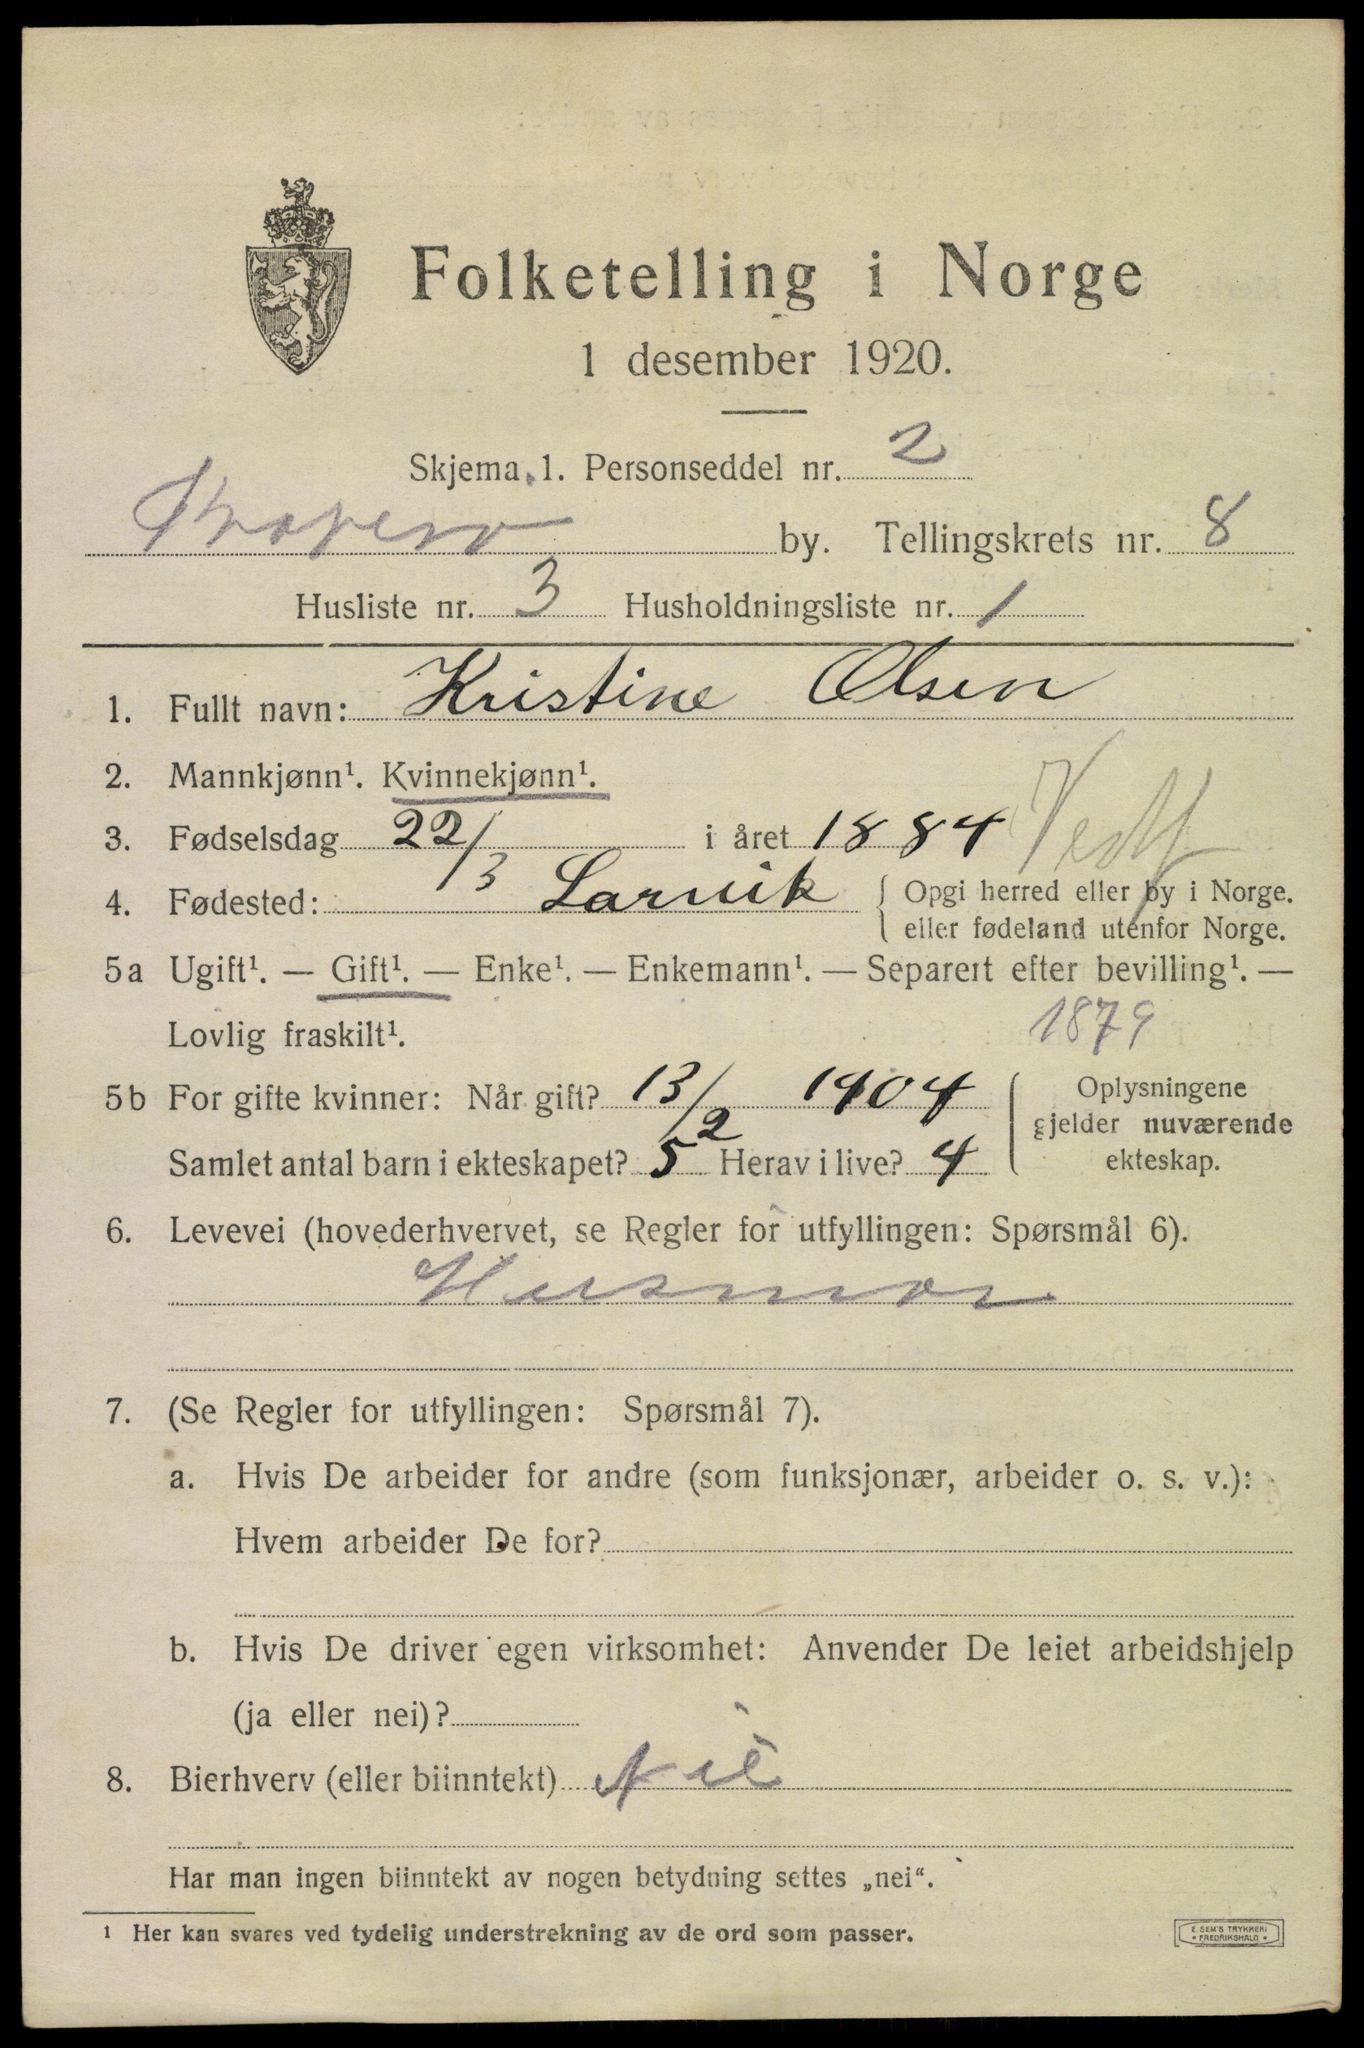 Folketelling i Norge
1 desember 1920.
Skjema 1. Personseddel nr. 2
Kragerø by. Tellingskrets nr. 8
Husliste nr. 3 Husholdningsliste nr. 1
1. Fullt navn: Kristine Olsen
2. Mannkjønn¹. Kvinnekjønn¹.
3. Fødselsdag 22/3 i året 1884
4. Fødested: Larvik { Opgi herred eller by i Norge.
eller fødeland utenfor Norge.
5a Ugift¹. — Gift¹. — Enke¹. — Enkemann¹. — Separert efter bevilling¹. —
Lovlig fraskilt¹. 1879
5b For gifte kvinner: Når gift? 13/2 1904 Oplysningene
gjelder nuværende
Samlet antal barn i ekteskapet? 5 Herav i live? 4 ekteskap.
6. Levevei (hovederhvervet, se Regler for utfyllingen: Spørsmål 6).
Husmor
7. (Se Regler for utfyllingen: Spørsmål 7).
a. Hvis De arbeider for andre (som funksjonær, arbeider o. s. v.):
Hvem arbeider De for?
b. Hvis De driver egen virksomhet: Anvender De leiet arbeidshjelp
(ja eller nei)?
8. Bierhverv (eller biinntekt) Nei
Har man ingen biinntekt av nogen betydning settes „nei“.
¹ Her kan svares ved tydelig understrekning av de ord som passer.
E. SEM'S TRYKKERI
• FREDRIKSHALD •